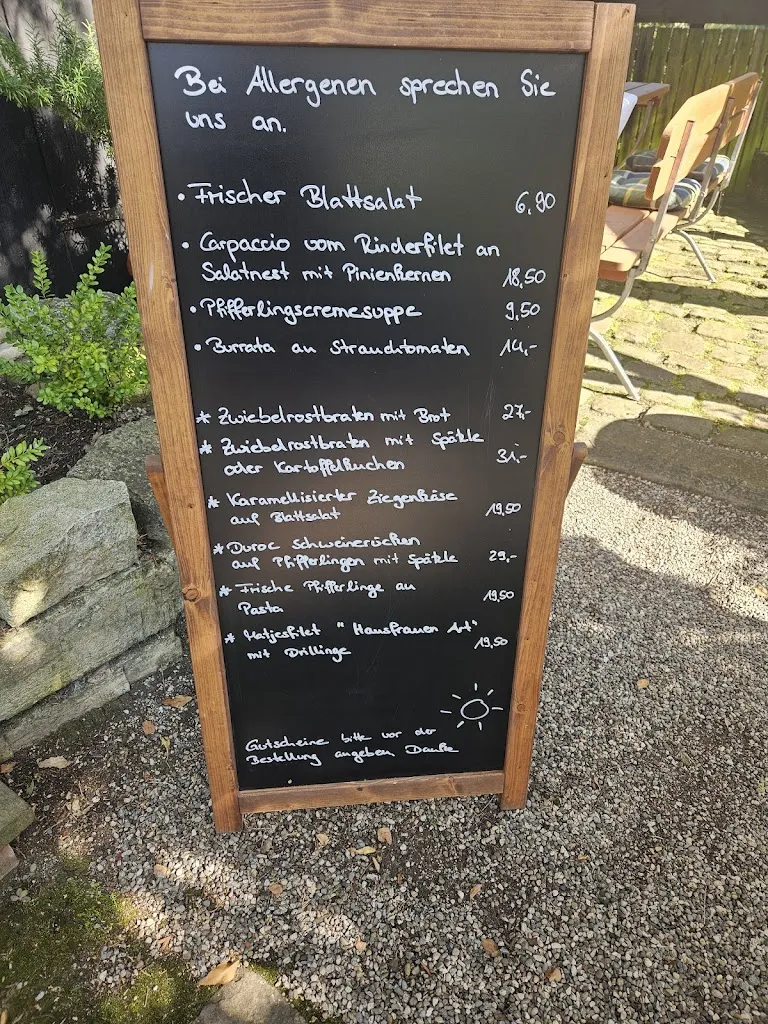 Bei Allergenen sprechen Sie
uns an.
• Frischer Blattsalat 6,90
• Carpaccio vom Rinderfilet an
Salatnest mit Pinienkernen 18,50
• Pfifferlingscremesuppe 9,50
• Burrata an Strauchtomaten 14,-
* Zwiebelrostbraten mit Brot 27,-
* Zwiebelrostbraten mit Spätzle
oder Kartoffelkuchen 31,-
* Karamellisierter Ziegenkäse
auf Blattsalat 19,50
* Duroc Schweinerücken
auf Pfifferlingen mit Spätzle 29,-
* Frische Pfifferlinge an
Pasta 19,50
* Matjesfilet "Hausfrauen Art"
mit Drillinge 19,50
Gutscheine bitte vor der
Bestellung angeben Danke